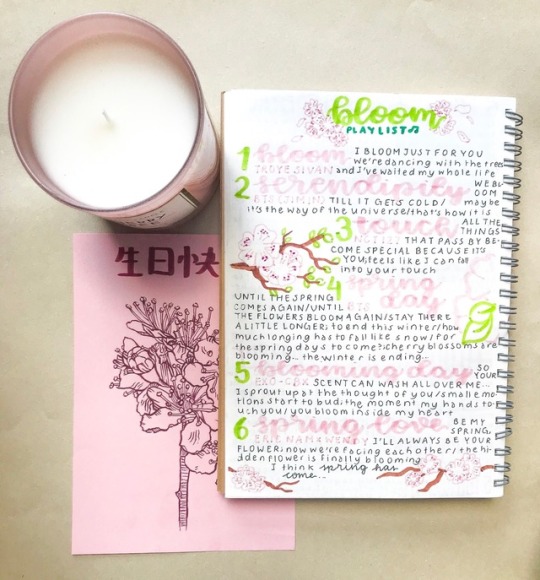 bloom
PLAYLIST♫
1 bloom I BLOOM JUST FOR YOU
we're dancing with the trees
TROYE SIVAN and I've waited my whole life
2 serendipity WE BL
OOM
BTS (JIMIN) TILL IT GETS COLD/ maybe
it's the way of the universe/that's how it is
3 touch ALL THE
THINGS
NCT 127 THAT PASS BY BE-
COME SPECIAL BECAUSE IT'S
YOU; feels like I can fall
into your touch
4 spring
day
UNTIL THE SPRING
COMES AGAIN/UNTIL BTS
THE FLOWERS BLOOM AGAIN/STAY THERE
A LITTLE LONGER; to end this winter/how
much longing has to fall like snow/for
the spring days to come?; cherry blossoms are
blooming... the winter is ending..
5 blooming day SO
YOUR
EXO-CBX SCENT CAN WASH ALL OVER ME...
I sprout up at the thought of you/small emo-
tions start to bud; the moment my hands to-
uch you/you bloom inside my heart
6 spring love BE MY
SPRING,
ERIC NAM & WENDY I'LL ALWAYS BE YOUR
FLOWER; now we're facing each other/the hi-
dden flower is finally blooming
I think spring has
come..
生日快